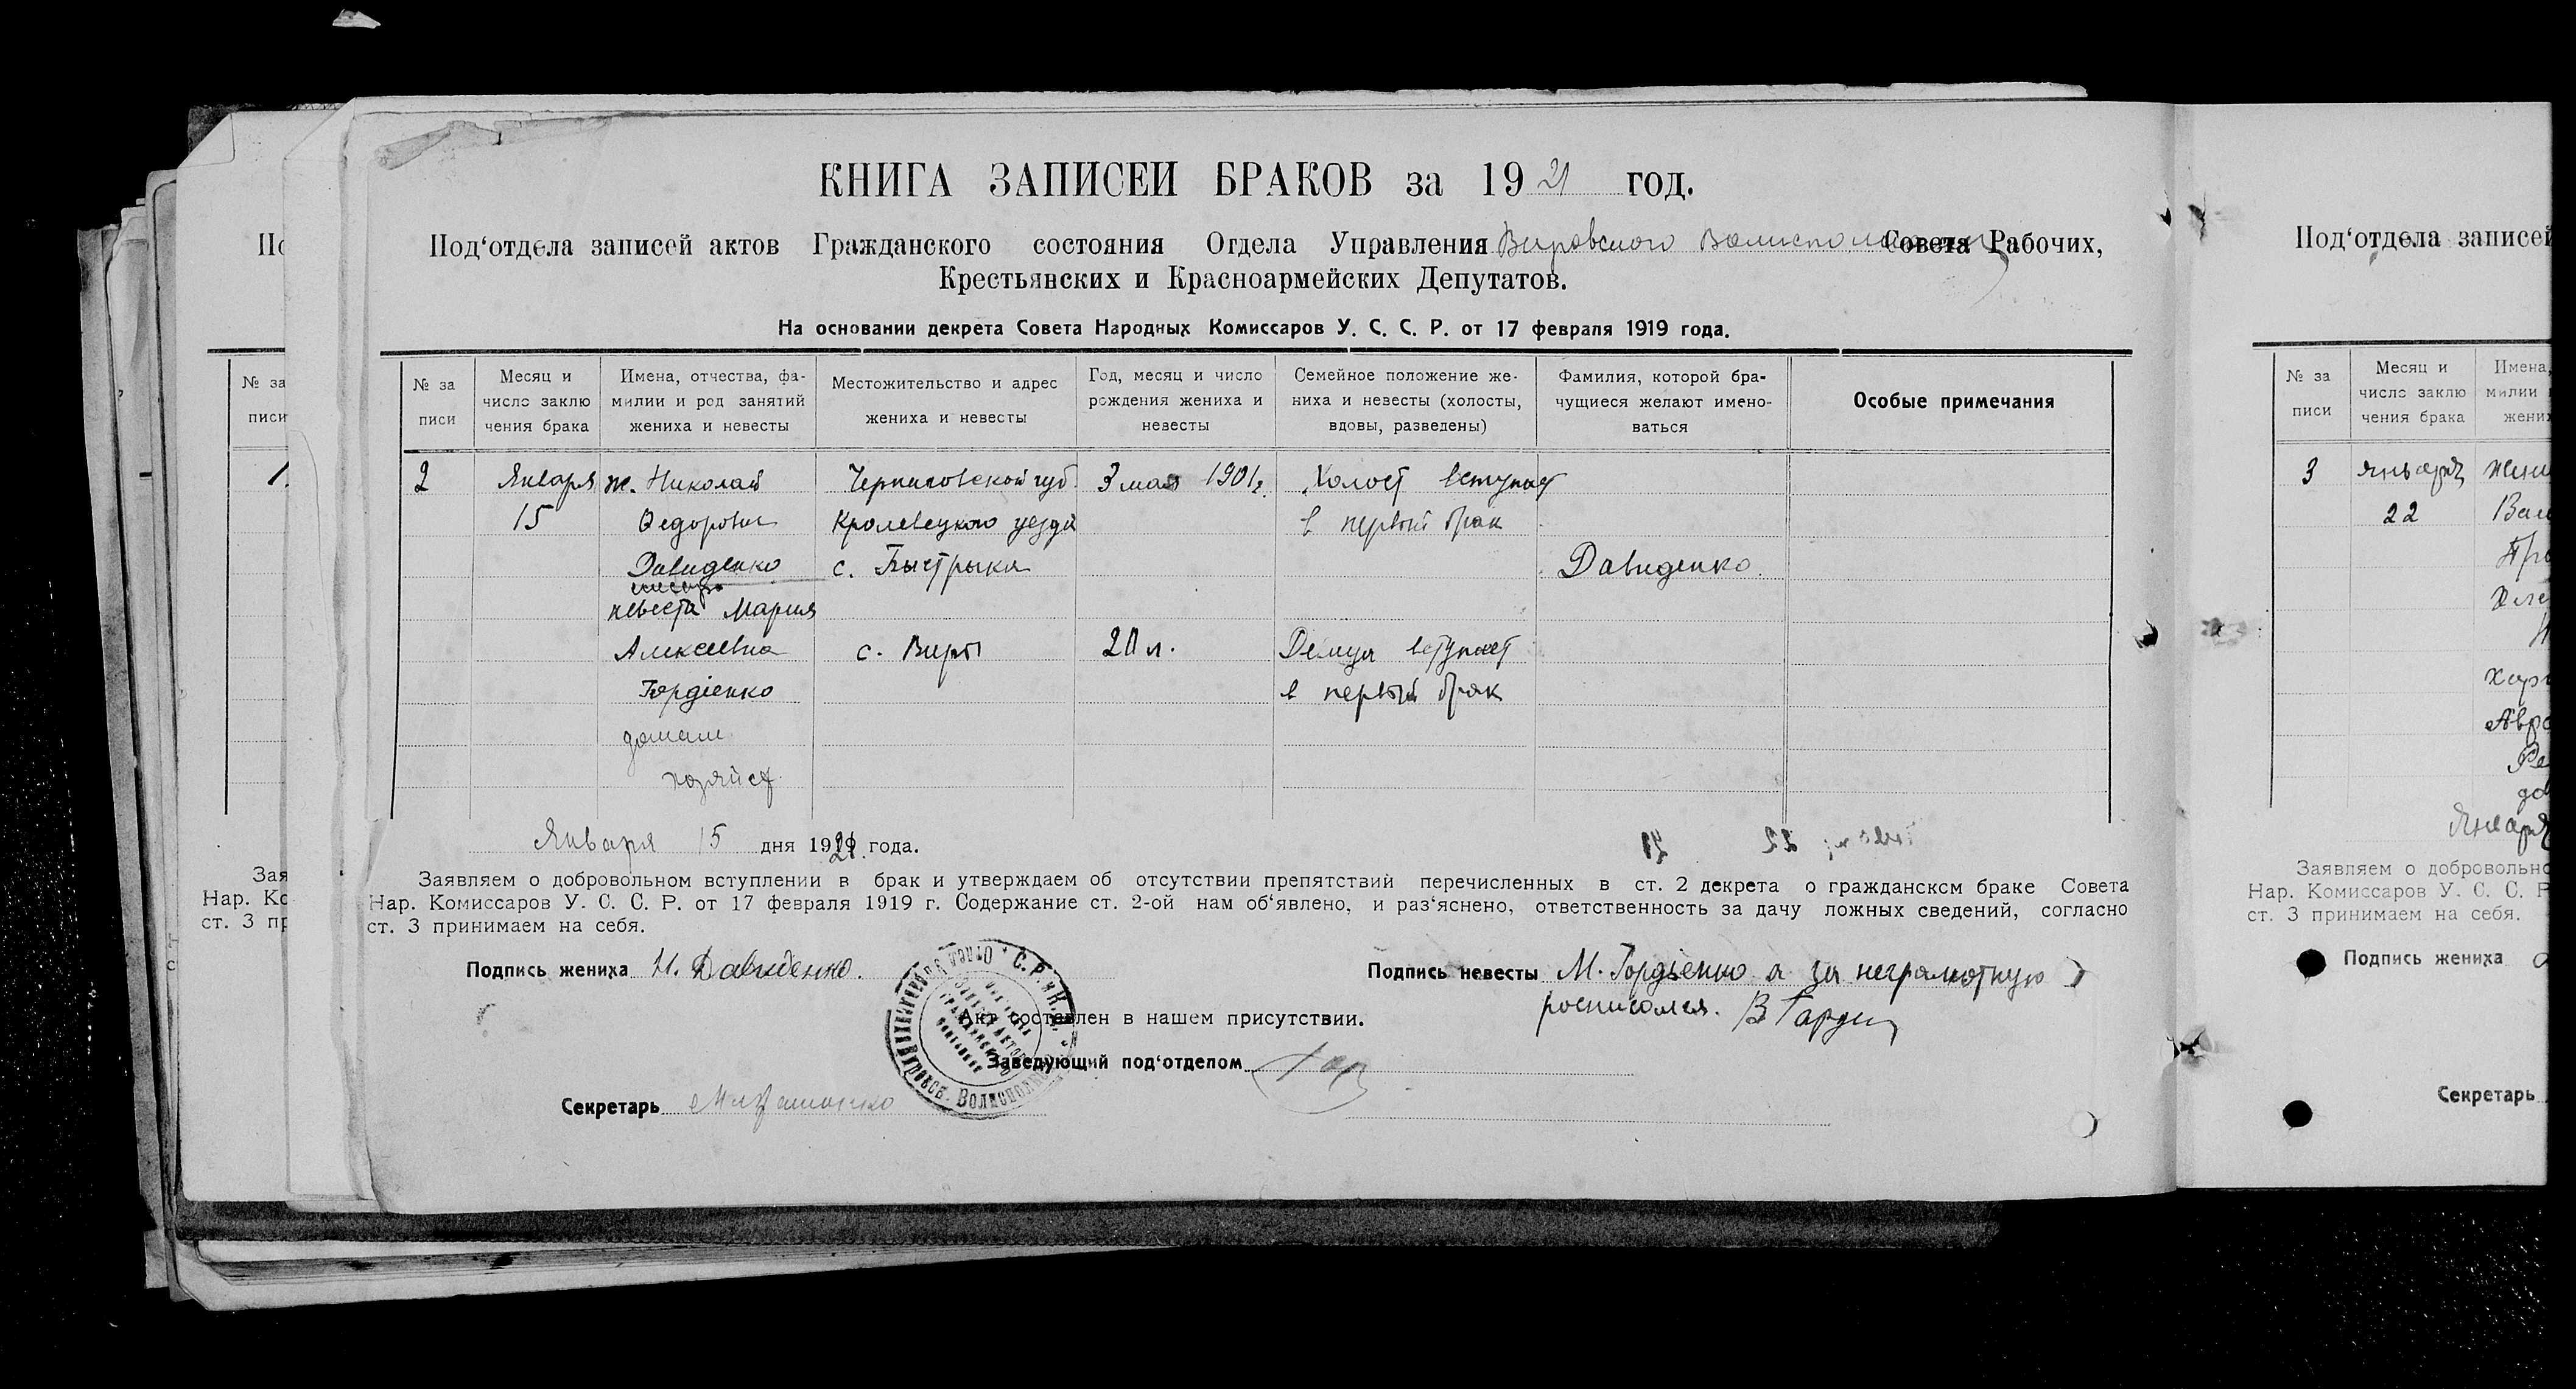 КНИГА ЗАПИСЕЙ БРАКОВ за 1921 год.
Под‘отдела записей актов Гражданского состояния Отдела Управления Вировского Совета Рабочих,
Крестьянских и Красноармейских Депутатов.
На основании декрета Совета Народных Комиссаров У. С. С. Р. от 17 февраля 1919 года.
№ за
писи
Месяц и
число заклю
чения брака
Имена, отчества, фа-
милии и род занятий
жениха и невесты
Местожительство и адрес
жениха и невесты
Год, месяц и число
рождения жениха и
невесты
Семейное положение же-
ниха и невесты (холосты,
вдовы, разведены)
Фамилия, которой бра-
чущиеся желают имено-
ваться
Особые примечания
2
Января
15
ж. Николай
Федорович
Давиденко
невеста Мария
Алексеевна
Гордіенко
домаш
хозяйст
Черниговской губ.
Кролевецкого уезда
с. Быстрыки
с. Виры
3 мая 1901 г.
20 л.
Холост вступает
в первый брак
Девица вступает
в первый брак
Давиденко
Января 15 дня 1921 года.
Заявляем о добровольном вступлении в брак и утверждаем об отсутствии препятствий перечисленных в ст. 2 декрета о гражданском браке Совета
Нар. Комиссаров У. С. С. Р. от 17 февраля 1919 г. Содержание ст. 2-ой нам об‘явлено, и раз‘яснено, ответственность за дачу ложных сведений, согласно
ст. 3 принимаем на себя.
Подпись жениха Н. Давиденко.
Подпись невесты М. Гордіенко а за неграмотную
росписался. В Горди
Акт составлен в нашем присутствии.
Заведующий под‘отделом
Секретарь
№ за
писи
1.
Зая
Нар. Ко
ст. 3 пр
Под‘отдела записей
№ за
писи
Месяц и
число заклю
чения брака
Имена,
милии
жених
3
января
22
Января
Заявляем о добровольно
Нар. Комиссаров У. С. С. Р
ст. 3 принимаем на себя.
Подпись жениха
Секретарь